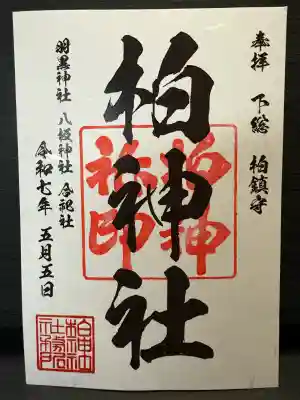 奉拝 下総 柏鎮守
柏神社
柏神
社印
羽黒神社 八坂神社 合祀社
令和七年 五月五日